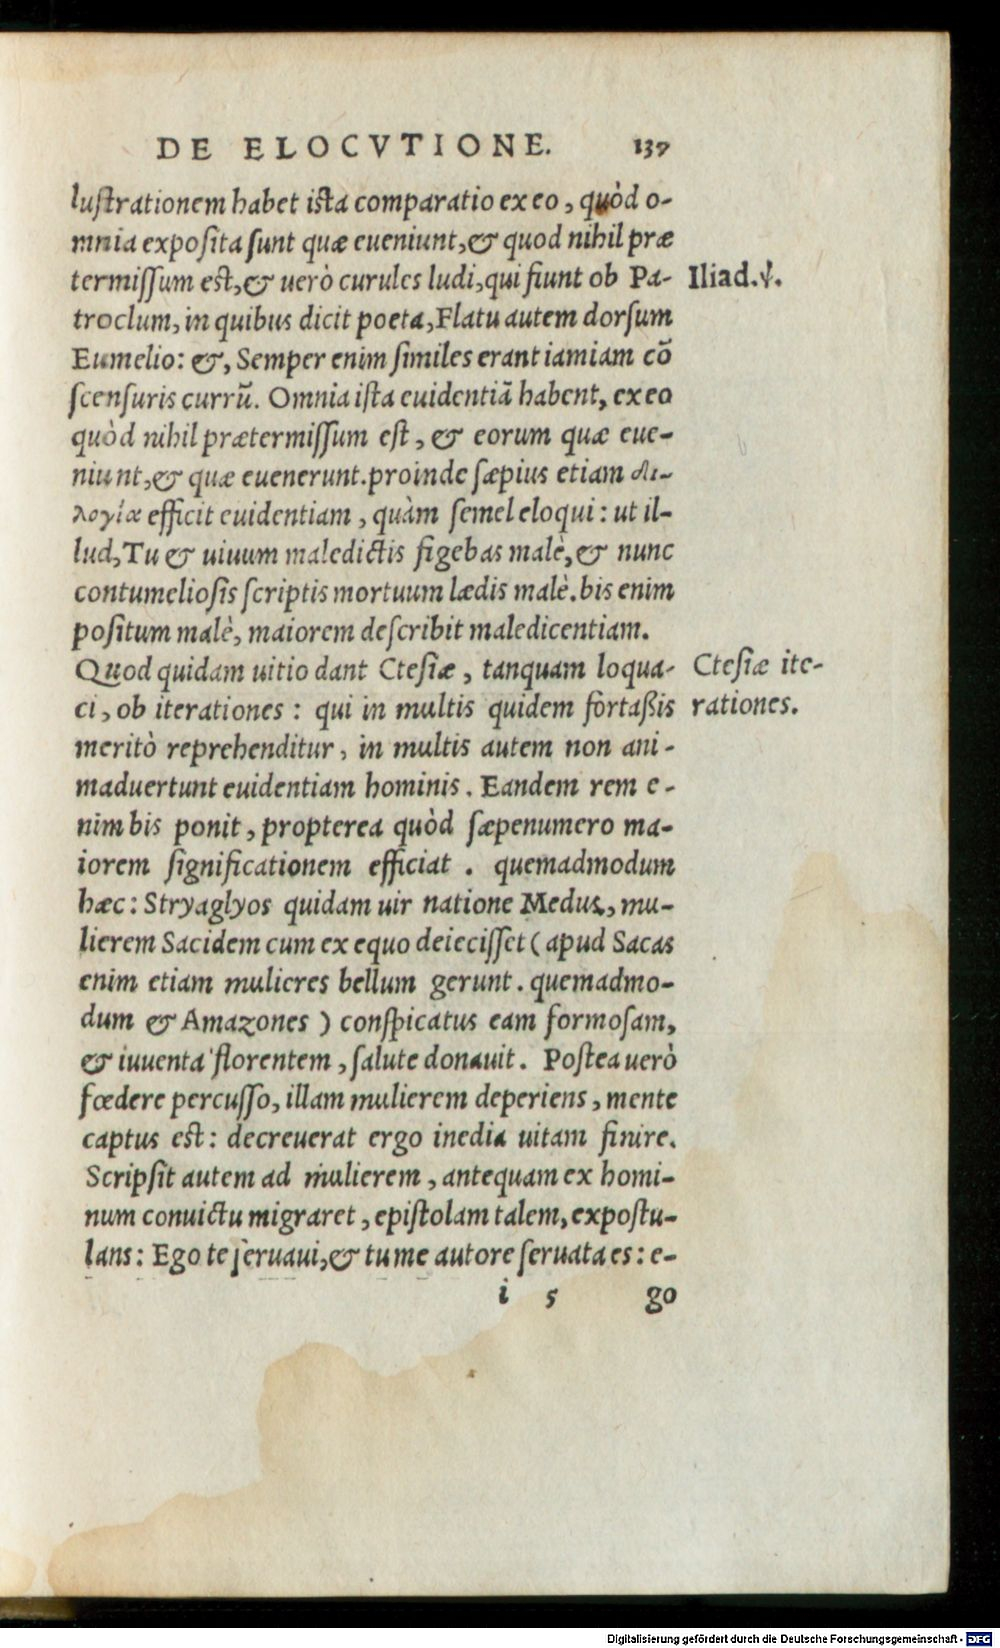 DE ELOCVTIONE. 137
luſtrationem habet iſta comparatio ex eo, quòd o-
mnia expoſita ſunt quæ eueniunt, & quod nihil præ
termiſſum eſt, & uerò curules ludi, qui fiunt ob Pa- Iliad.ψ.
troclum, in quibus dicit poeta, Flatu autem dorſum
Eumelio: &, Semper enim ſimiles erant iamiam cõ
ſcenſuris currũ. Omnia iſta euidentiã habent, ex eo
quòd nihil prætermiſſum eſt, & eorum quæ eue-
niunt, & quæ euenerunt. proinde ſæpius etiam δι-
λογία efficit euidentiam, quàm ſemel eloqui: ut il-
lud, Tu & uiuum maledictis figebas malè, & nunc
contumelioſis ſcriptis mortuum lædis malè. bis enim
poſitum malè, maiorem deſcribit maledicentiam.
Quod quidam uitio dant Cteſiæ, tanquam loqua- Cteſiæ ite-
ci, ob iterationes: qui in multis quidem fortaßis rationes.
meritò reprehenditur, in multis autem non ani-
maduertunt euidentiam hominis. Eandem rem e-
nim bis ponit, propterea quòd ſæpenumero ma-
iorem ſignificationem efficiat. quemadmodum
hæc: Stryaglyos quidam uir natione Medus, mu-
lierem Sacidem cum ex equo deieciſſet (apud Sacas
enim etiam mulieres bellum gerunt. quemadmo-
dum & Amazones) conſpicatus eam formoſam,
& iuuenta florentem, ſalute donauit. Poſtea uerò
fœdere percuſſo, illam mulierem deperiens, mente
captus eſt: decreuerat ergo inedia uitam finire.
Scripſit autem ad mulierem, antequam ex homi-
num conuictu migraret, epiſtolam talem, expoſtu-
lans: Ego te ſeruaui, & tu me autore ſeruata es: e-
i 5 go
Digitalisierung gefördert durch die Deutsche Forschungsgemeinschaft - DFG